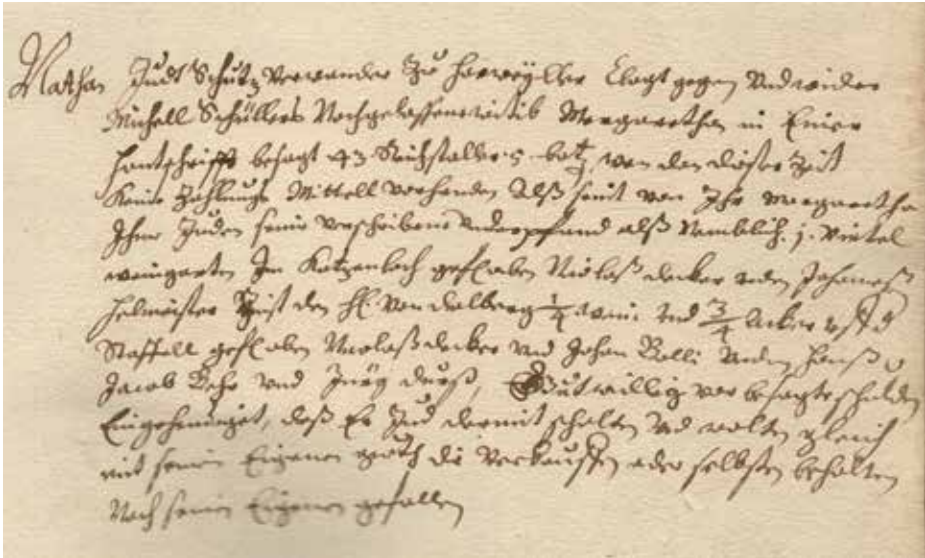 Nathan Judt Schutz Verwander Zu Harweyller Clagt gegen Vnd wider
Michell Schüllers Nachgelassene witib Margaretha in Einer
Hantschrifft besagt 43 Reichstaller 5 batz, von den dieser Zeit
Keine Zahlungs Mittell vorhanden Alß seint von Ihr Margaretha
Ihme Juden seine verschribene Underpfand alß Namblich. j. virtel
weingarten Im Katzenloch gefl oben Niclaß decker vnden Johanes
Helmeister Zinst den H. von dalberg 1/4 wein vnd 3/4 Acker vff d
Staffell gefl oben Niclaß decker vnd Johan Bolli Vnden Hanß
Jacob Behr vnd Jurg durß, Guttwillig vor besagte schulden
Eingehendiget, daß Er Jud darmit schalten vnd walten gleich
mit seinen Eigenen guth die Verkauffen oder selbsten behalten
Nach seinen Eigenen gefallen